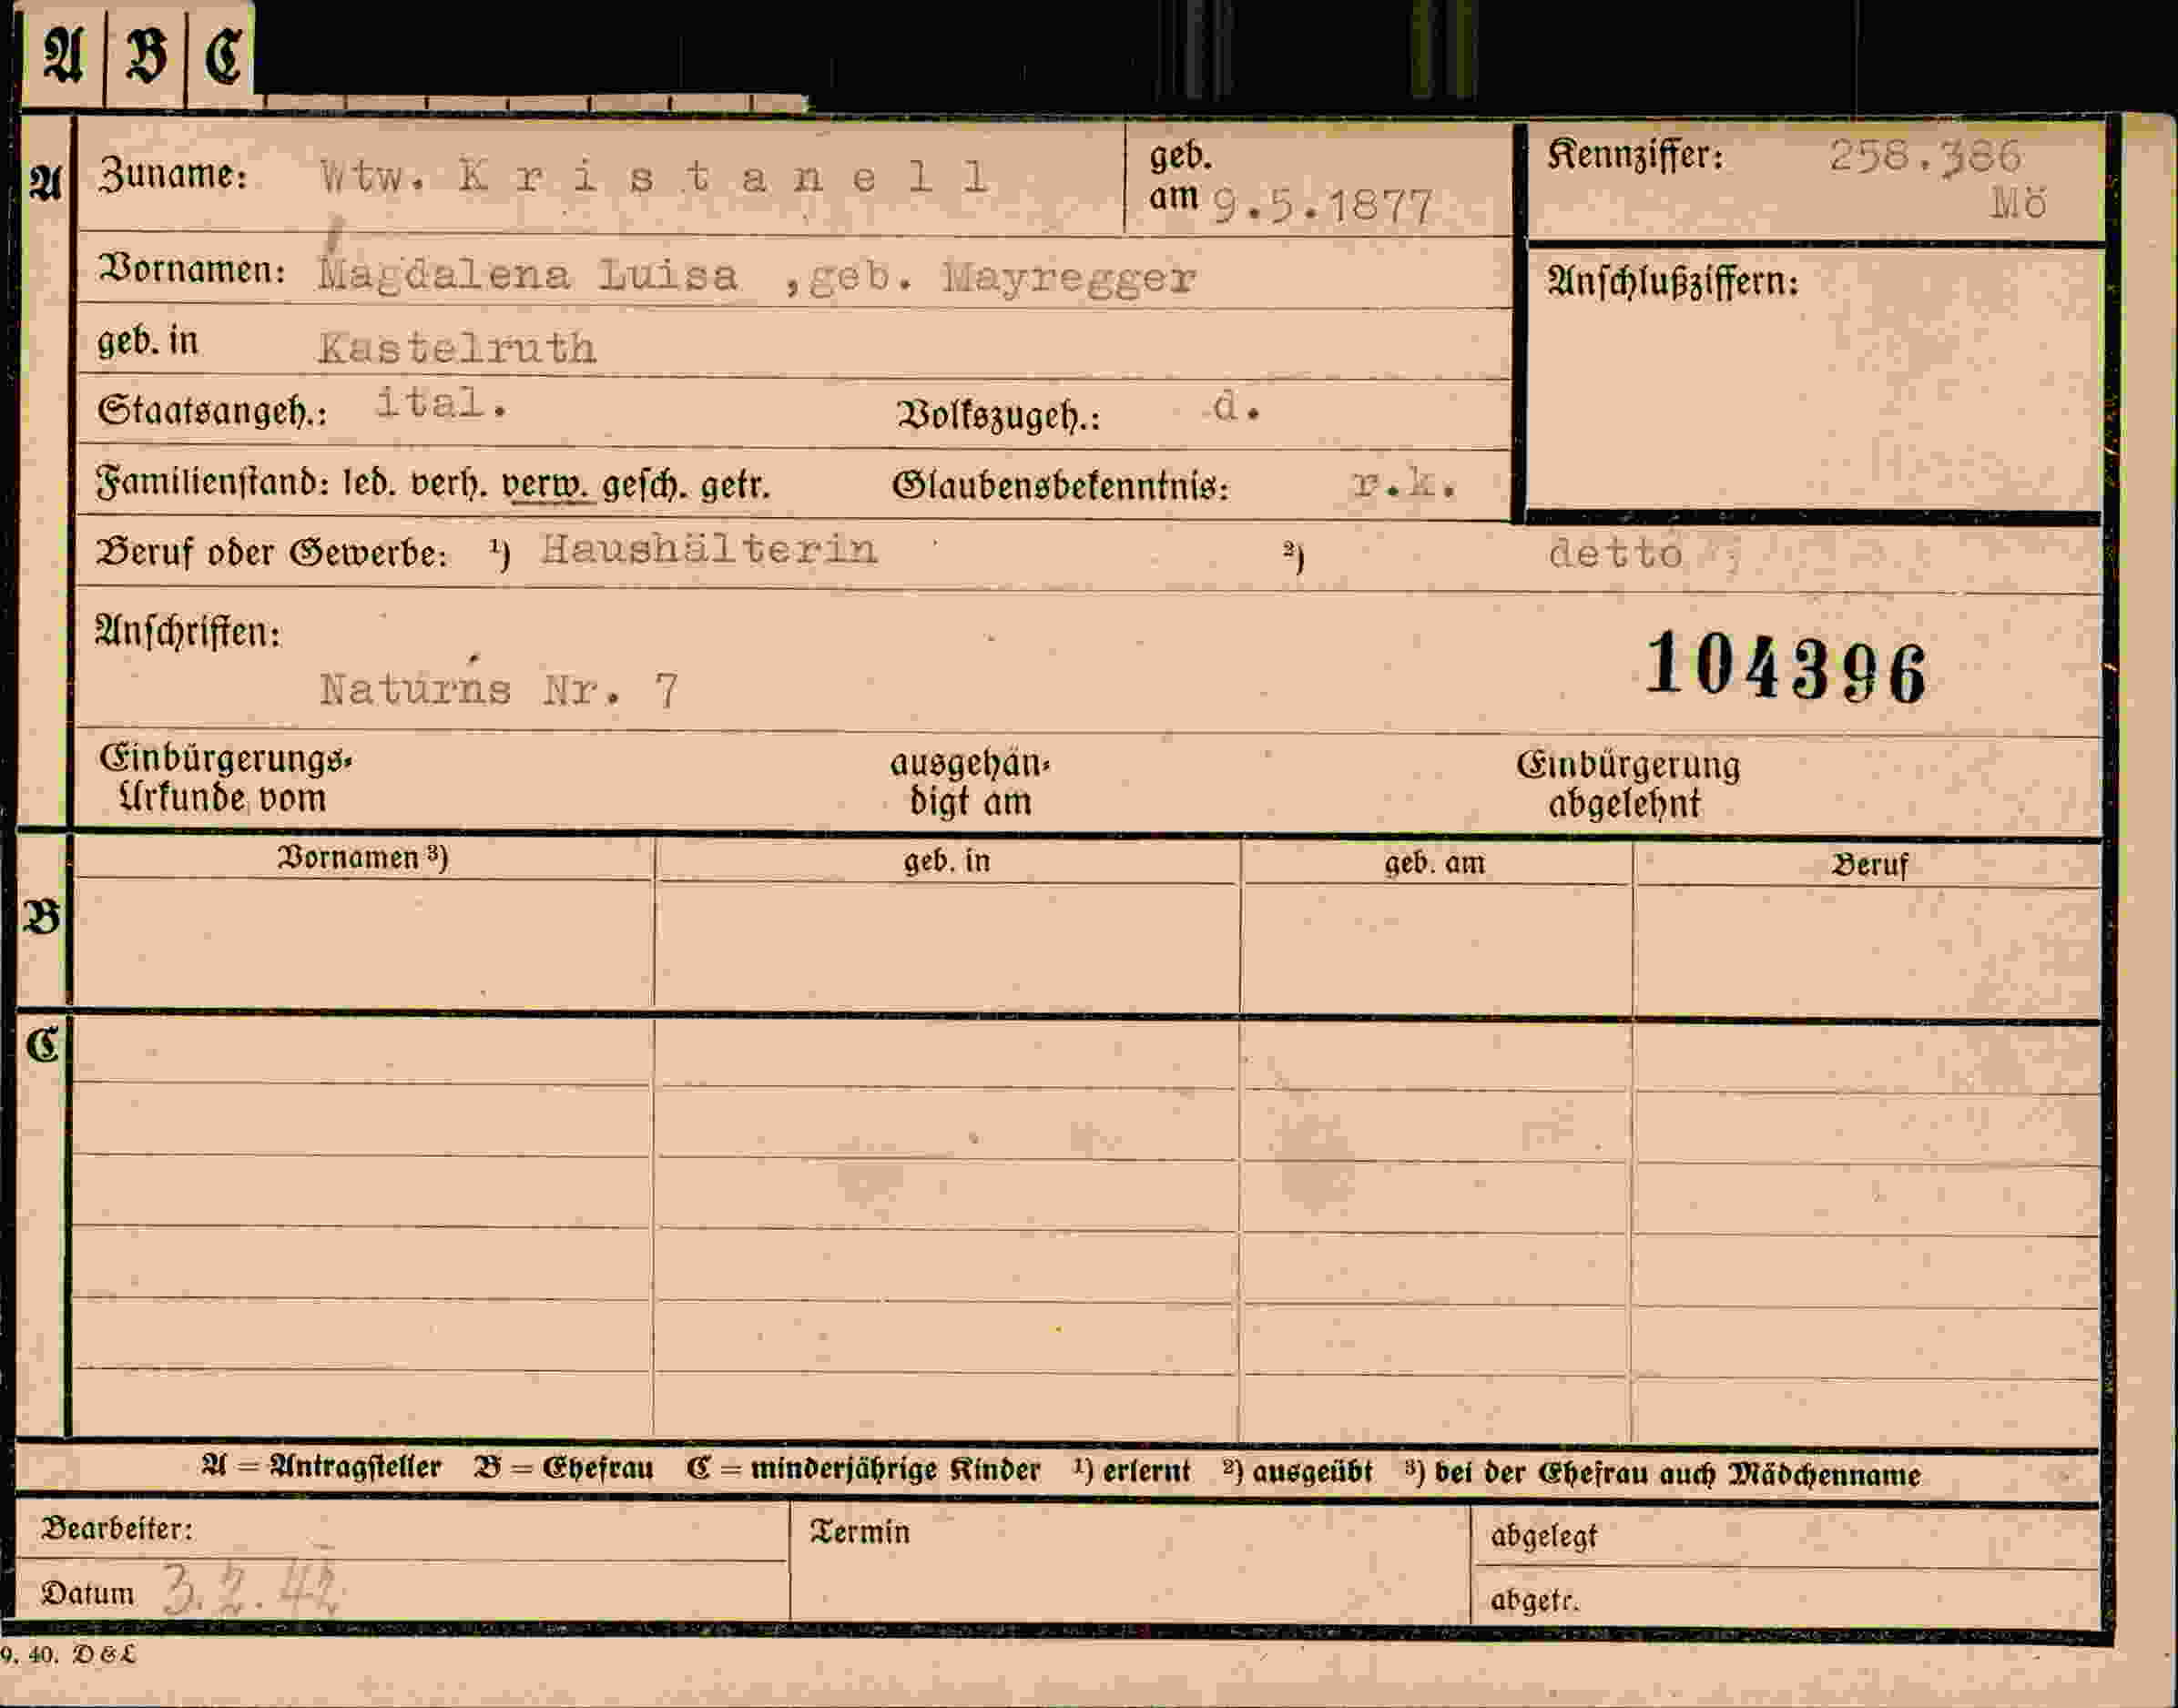 A B C
A Zuname: Wtw. K r i s t a n e l l geb. am 9.5.1877 Kennziffer: 258.386 Mö
Vornamen: Magdalena Luisa ,geb. Mayregger Anschlußziffern:
geb. in Kastelruth
Staatsangeh.: ital. Volkszugeh.: d.
Familienstand: led. verh. verw. gesch. getr. Glaubensbekenntnis: r.k.
Beruf oder Gewerbe: ¹) Haushälterin ²) detto
Anschriften:
104396
Naturns Nr. 7
Einbürgerungs- ausgehän- Einbürgerung
Urkunde vom digt am abgelehnt
Vornamen ³) geb. in geb. am Beruf
B
C
A = Antragsteller B = Ehefrau C = minderjährige Kinder ¹) erlernt ²) ausgeübt ³) bei der Ehefrau auch Mädchenname
Bearbeiter: Termin abgelegt
Datum 3.2.42 abgetr.
9. 40. D & L